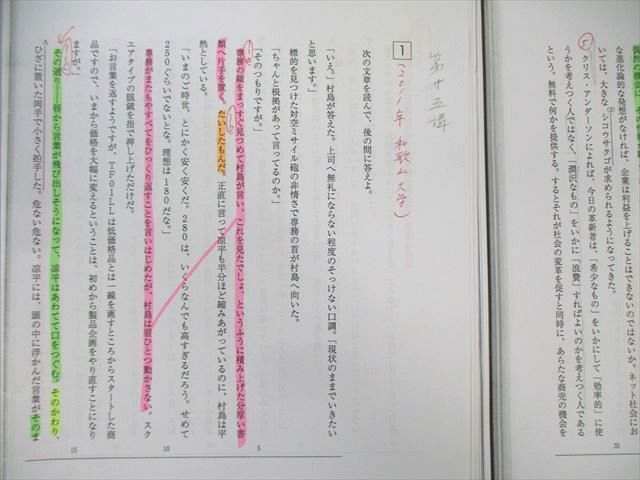 偶然の機会に
な進化論的な発想がなければ、企業は利益を上げることができないのではないか。ネット社会にお
いては、大きなシコウサクゴが求められるようになってきた。
⑤
クリス・アンダーソンによれば、今日の革新者は、「希少なもの」をいかにして「効率的」に使
うかを考えつく人ではなく、「潤沢なもの」をいかに「浪費」すればよいのかを考えつく人である
という。無料で何かを提供する。するとそれが社会の変革を促すと同時に、あらたな商売の機会を
35
第十五講
1
(2011年 和歌山大学)
次の文章を読んで、後の問に答えよ。
「いえ。」村島が答えた。上司へ無礼にならない程度のそっけない口調。「現状のままでいきたい
と思います。」
標的を見つけた対空ミサイル砲の非情さで専務の首が村島へ向いた。
「ちゃんと根拠があって言ってるのか。」
「そのつもりですが。」
専務の顔をまっすぐ見つめて村島が言い、これを見たでしょ、というふうに積み上げた分厚い書
類へ片手を置く。たいしたもんだ。正直に言って凉平も半分ほど縮みあがっているのに、村島は平
然としている。
「いまのご時世、とにかく安く安くだ。280は、いくらなんでも高すぎるだろう。せめて
250ぐらいでないとな。理想は180だな。」
専務がまたもやすべてをひっくり返すことを言いはじめたが、村島は眉ひとつ動かさない。スク
エアタイプの眼鏡を指で押し上げただけだ。
「お言葉を返すようですが、TF01LLは低価格品とは一線を画すところからスタートした商
品ですので、いまから価格を大幅に変えるということは、初めから製品企画をやり直すことになり
ますが。」
その通り――唇から言葉が飛び出しそうになって、凉平はあわてて口をつぐむ。そのかわり、
A
ひざに置いた両手で小さく拍手した。危ない危ない。凉平には、頭の中に浮かんだ言葉がそのま
5
10
15